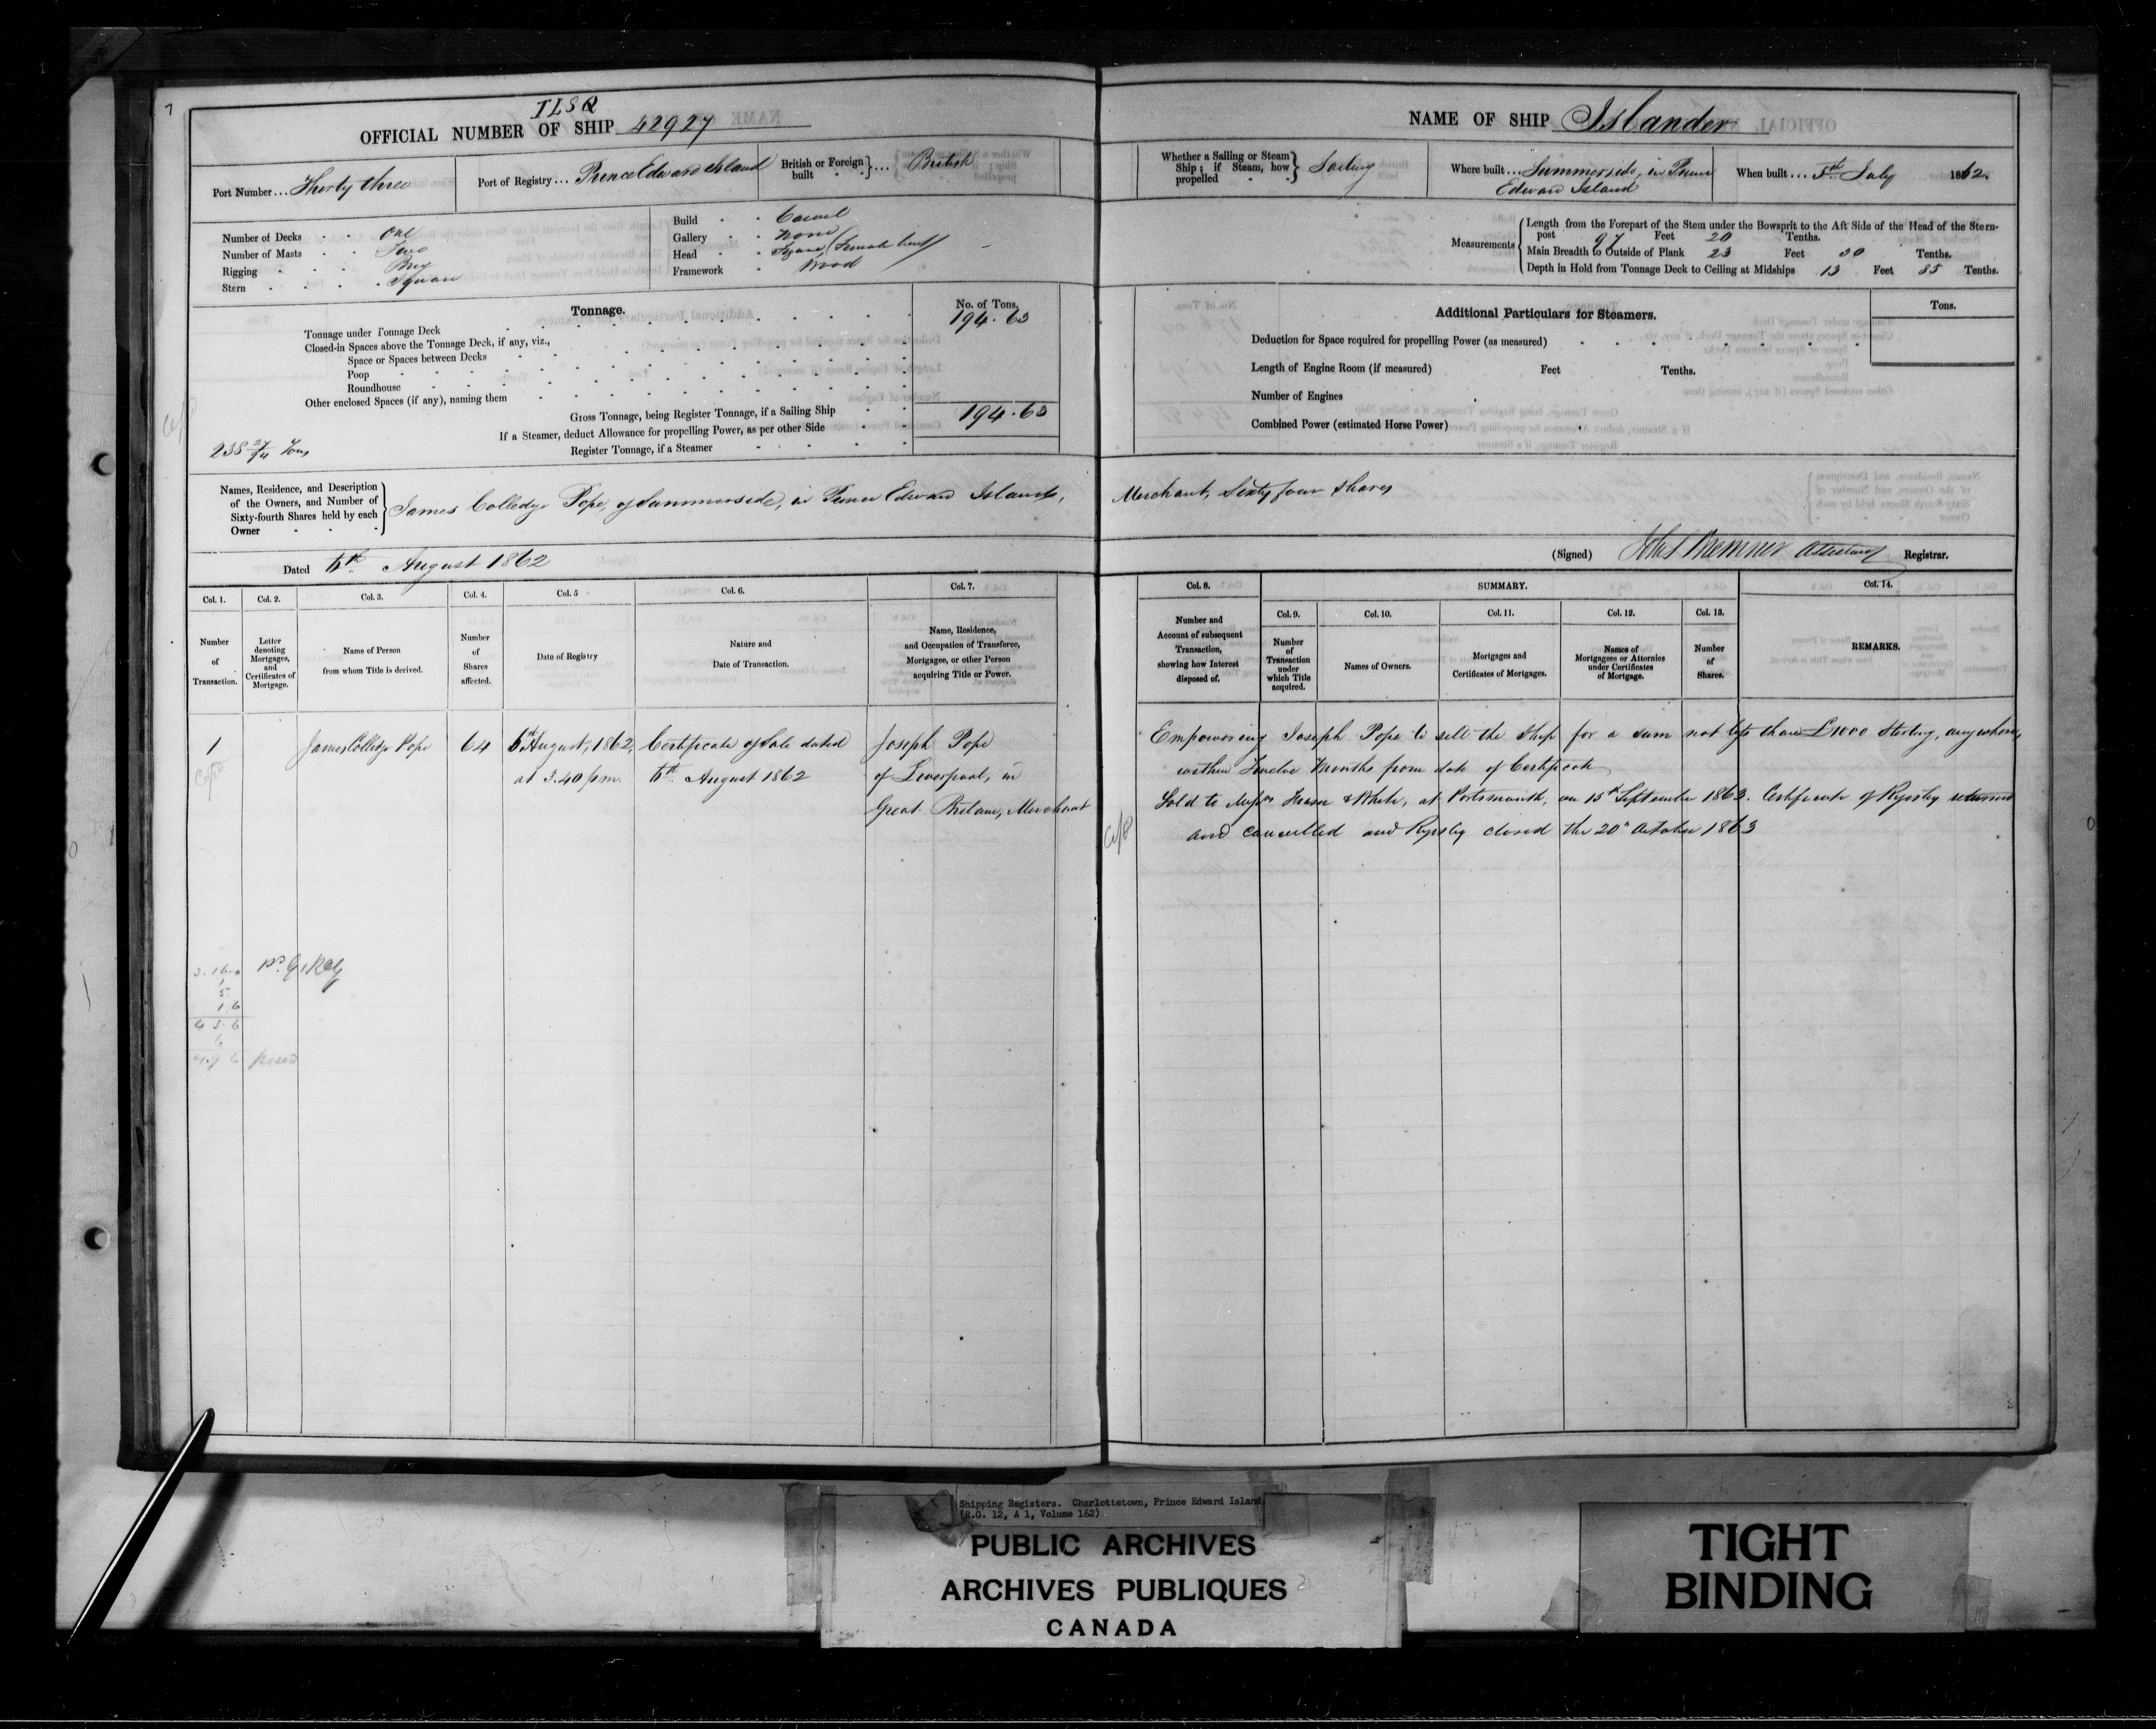 7
ILSQ
OFFICIAL NUMBER OF SHIP 42927
Port Number... Thirty three
Port of Registry... Prince Edward Island
British or Foreign built } ... British
Number of Decks One
Number of Masts Two
Rigging Brig
Stern Square
Build Carvel
Gallery None
Head Figure (Female bust)
Framework Wood
Tonnage.
No. of Tons.
Tonnage under Tonnage Deck 194.63
Closed-in Spaces above the Tonnage Deck, if any, viz.,
Space or Spaces between Decks
Poop
Roundhouse
Other enclosed Spaces (if any), naming them
Gross Tonnage, being Register Tonnage, if a Sailing Ship 194.63
If a Steamer, deduct Allowance for propelling Power, as per other Side
Register Tonnage, if a Steamer
238 Tons
Names, Residence, and Description
of the Owners, and Number of
Sixty-fourth Shares held by each
Owner
James Colledge Pope, of Summerside, in Prince Edward Island,
Dated 6th August 1862
Col. 1. Col. 2. Col. 3. Col. 4. Col. 5 Col. 6. Col. 7.
Number of Transaction.
Letter denoting Mortgages, and Certificates of Mortgage.
Name of Person from whom Title is derived.
Number of Shares affected.
Date of Registry
Nature and Date of Transaction.
Name, Residence, and Occupation of Transferee, Mortgagee, or other Person acquiring Title or Power.
1 James Colledge Pope 64 6th August, 1862, Certificate of Sale dated Joseph Pope
at 3.40 p.m. 6th August 1862 of Liverpool, in
Great Britain, Merchant
1
5
1.6
4 3 6
6
4.9 6
NAME OF SHIP Islander
Whether a Sailing or Steam Ship; if Steam, how propelled } Sailing
Where built... Summerside, in Prince
Edward Island
When built... 5th July 1862.
Measurements
Length from the Forepart of the Stem under the Bowsprit to the Aft Side of the Head of the Stern-
post 97 Feet 20 Tenths.
Main Breadth to Outside of Plank 23 Feet 30 Tenths.
Depth in Hold from Tonnage Deck to Ceiling at Midships 13 Feet 85 Tenths.
Additional Particulars for Steamers.
Tons.
Deduction for Space required for propelling Power (as measured)
Length of Engine Room (if measured) Feet Tenths.
Number of Engines
Combined Power (estimated Horse Power)
Merchant, Sixty four Shares
(Signed) Registrar.
Col. 8. SUMMARY. Col. 14.
Col. 9. Col. 10. Col. 11. Col. 12. Col. 13.
Number and Account of subsequent Transaction, showing how Interest disposed of.
Number of Transaction under which Title acquired.
Names of Owners.
Mortgages and Certificates of Mortgages.
Names of Mortgagees or Attornies under Certificates of Mortgage.
Number of Shares.
REMARKS.
Empowering Joseph Pope to sell the Ship for a sum not less than £1000 Sterling, anywhere,
within Twelve Months from date of Certificate
Sold to Messrs & White, at Portsmouth, on 15th September 1863. Certificate of Registry returned
and cancelled and Registry closed the 20th October 1863
Shipping Registers. Charlottetown, Prince Edward Island.
(R.G. 12, A 1, Volume 162)
PUBLIC ARCHIVES
ARCHIVES PUBLIQUES
CANADA
TIGHT
BINDING